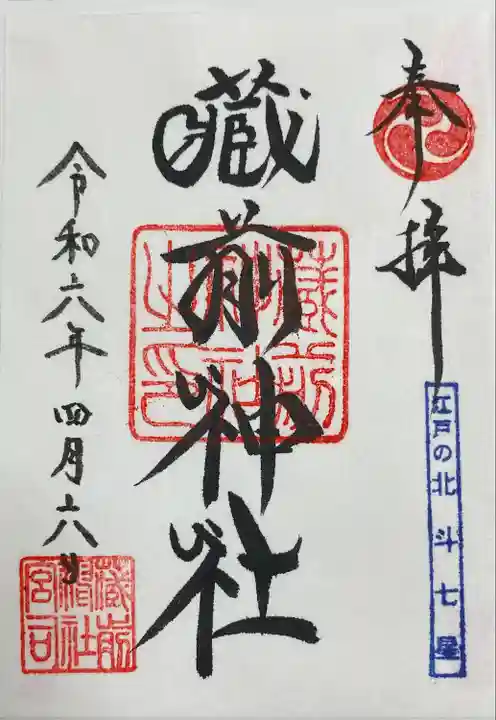 奉拝
江戸の北斗七星
蔵前神社
蔵前神社之印
令和六年四月六日
蔵前神社宮司